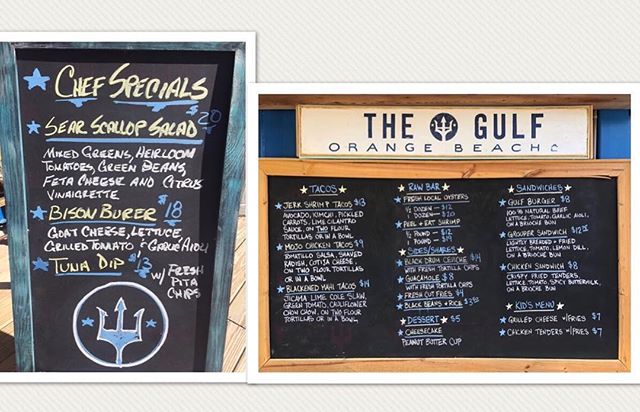 CHEF SPECIALS
SEAR SCALLOP SALAD $20
MIXED GREENS, HEIRLOOM
TOMATOES, GREEN BEANS,
FETA CHEESE AND CITRUS
VINAIGRETTE
BISON BURER $18
GOAT CHEESE, LETTUCE,
GRILLED TOMATO & GARLIC AIOLI
TUNA DIP $13
W/ FRESH
PITA
CHIPS
THE GULF
ORANGE BEACH
TACOS
JERK SHRIMP TACOS $13
AVOCADO, KIMCHI, PICKLED
CARROTS, LIME CILANTRO
SAUCE, ON TWO FLOUR
TORTILLAS OR IN A BOWL
MOJO CHICKEN TACOS $9
TOMATILLO SALSA, SHAVED
RADISH, COTIJA CHEESE
ON TWO FLOUR TORTILLAS
OR IN A BOWL
BLACKENED MAHI TACOS $14
JICAMA LIME COLE SLAW,
GREEN TOMATO, CAULIFLOWER
CHOW CHOW, ON TWO FLOUR
TORTILLAS OR IN A BOWL
RAW BAR
FRESH LOCAL OYSTERS
½ DOZEN $12
1 DOZEN
PEEL + EAT SHRIMP
½ POUND $12
1 POUND
SIDES/SHARES
BLACK DRUM CEVICHE $14
WITH FRESH TORTILLA CHIPS
GUACAMOLE $8
WITH FRESH TORTILLA CHIPS
FRESH CUT FRIES $4
BLACK BEANS + RICE $3.50
DESSERT $5
CHEESECAKE
PEANUT BUTTER CUP
SANDWICHES
GULF BURGER $8
100% NATURAL BEEF
LETTUCE, TOMATO, GARLIC AIOLI,
ON A BRIOCHE BUN
GROUPER SANDWICH
LIGHTLY BREADED + FRIED
LETTUCE, TOMATO, LEMON DILL,
ON A BRIOCHE BUN
CHICKEN SANDWICH $8
CRISPY FRIED TENDERS,
LETTUCE, TOMATO, SPICY BUTTERMILK,
ON A BRIOCHE BUN
KID'S MENU
GRILLED CHEESE W/FRIES $7
CHICKEN TENDERS W/FRIES $7